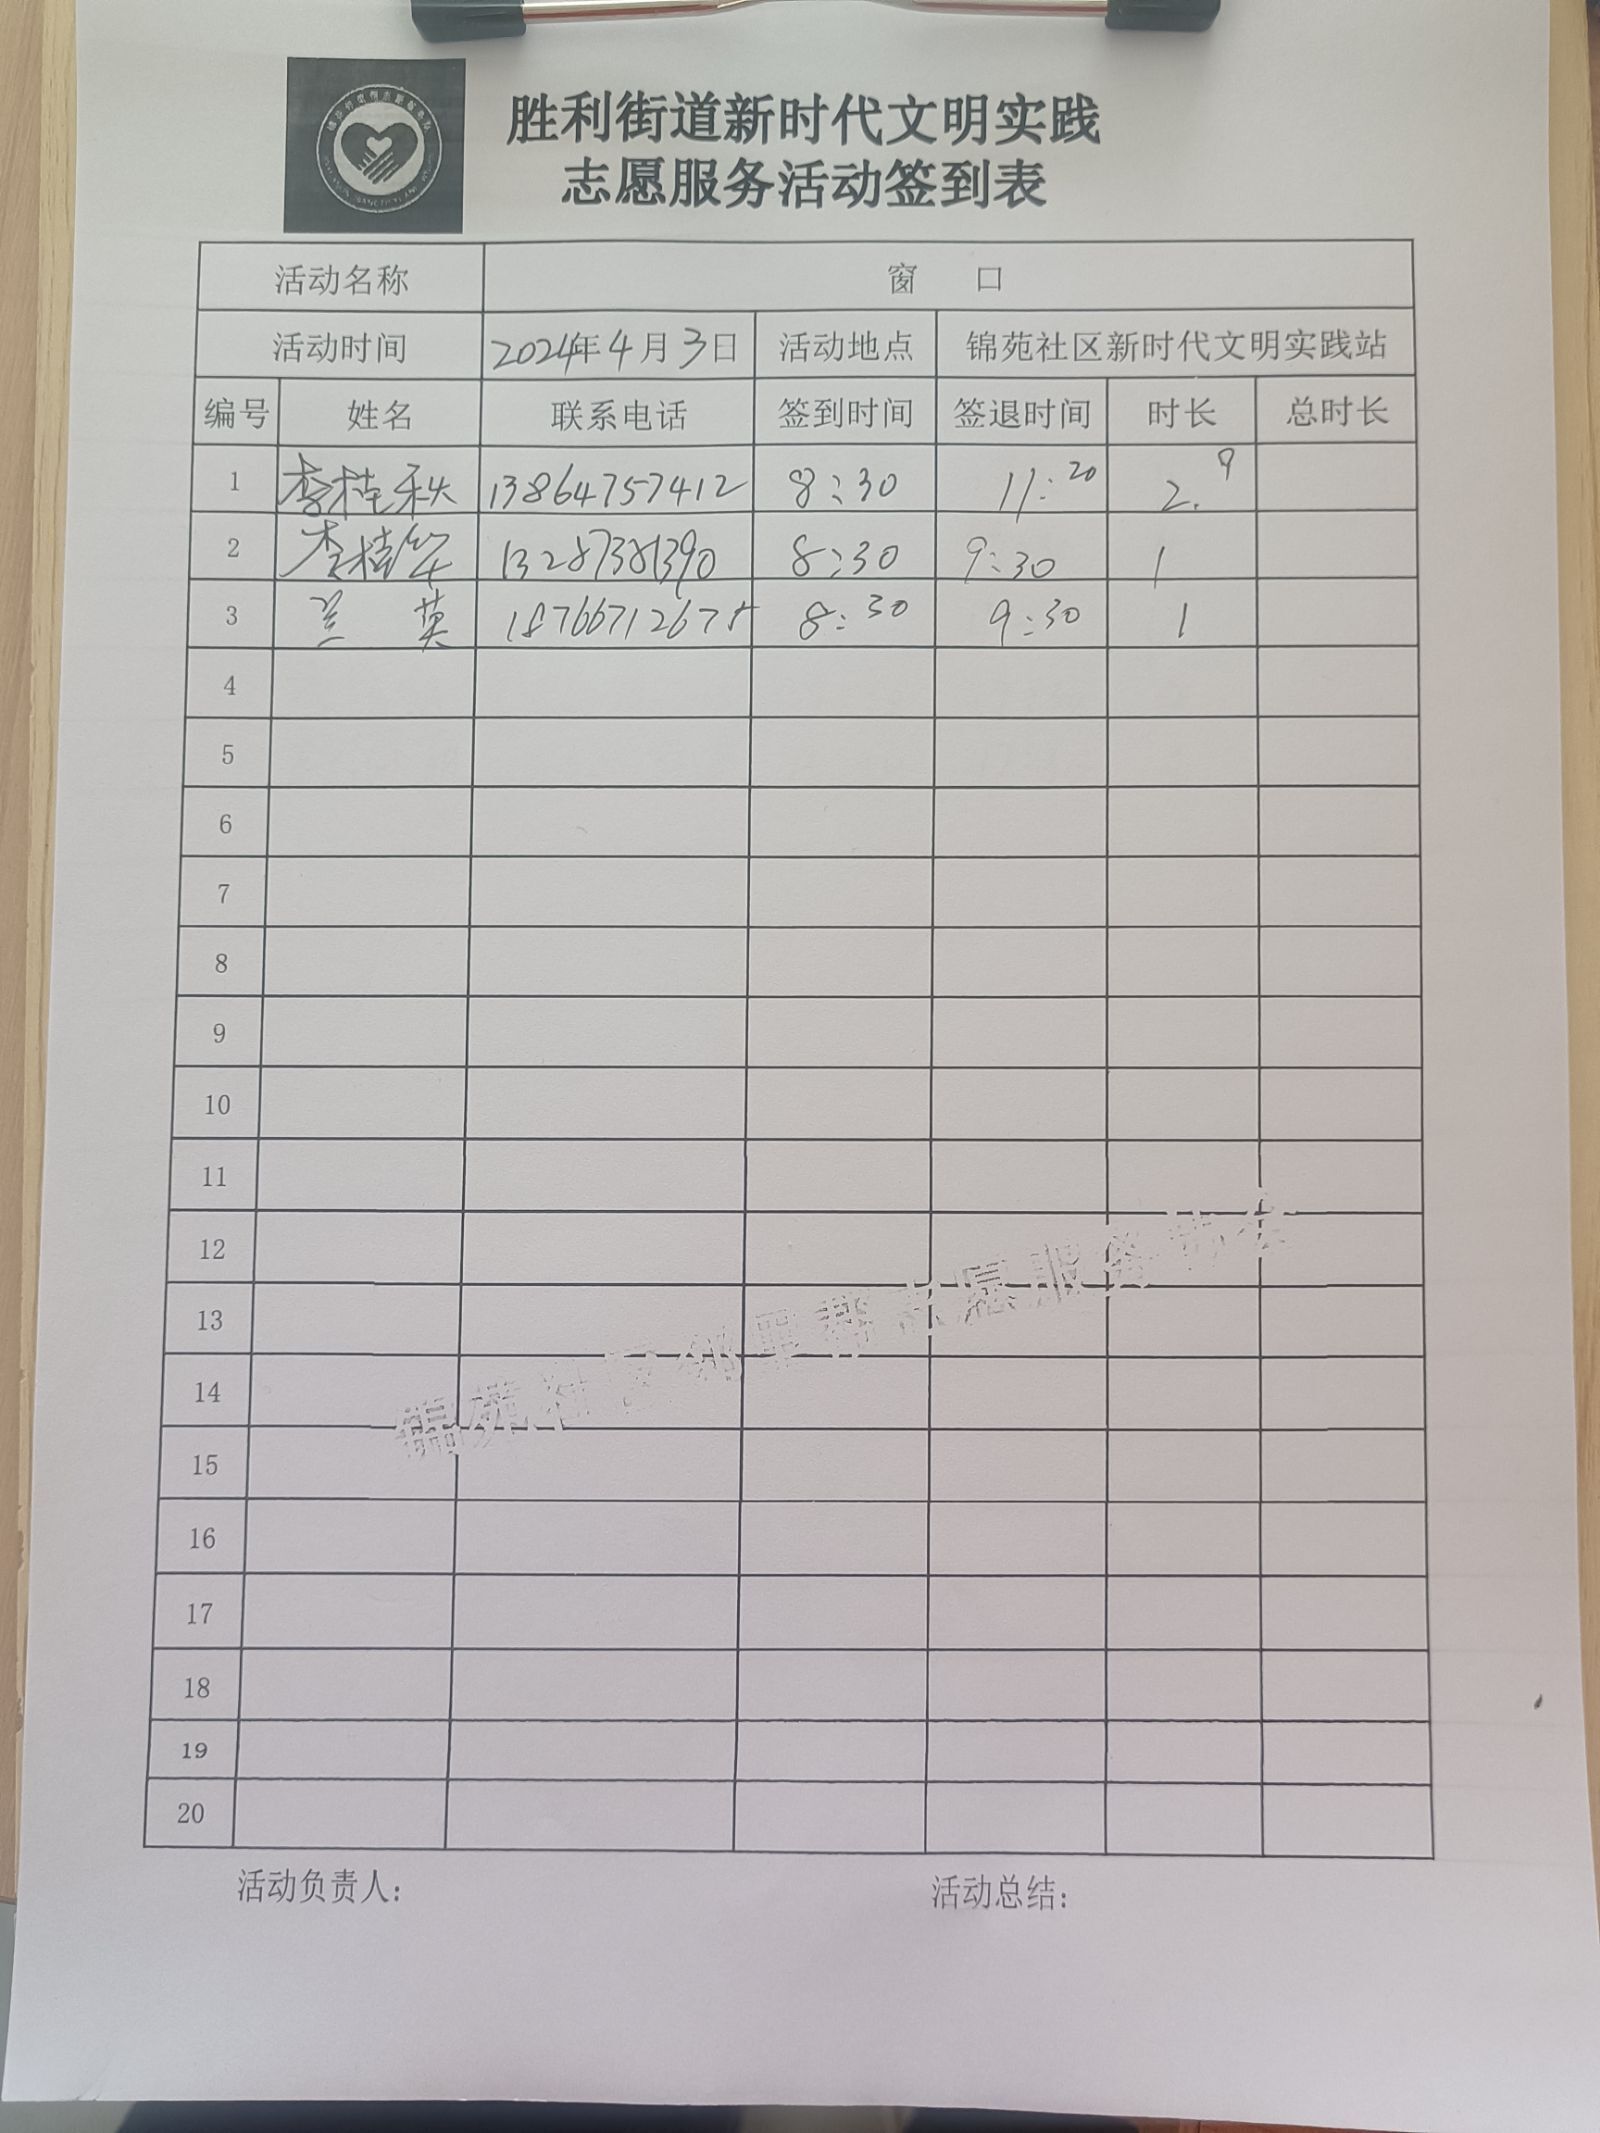 胜利街道新时代文明实践
志愿服务活动签到表
活动名称 窗 口
活动时间 2024年4月3日 活动地点 锦苑社区新时代文明实践站
编号 姓名 联系电话 签到时间 签退时间 时长 总时长
1 李桂秋 13864757412 8:30 11:20 2.9
2 李桂华 13287381390 8:30 9:30 1
3 兰英 18766712678 8:30 9:30 1
4
5
6
7
8
9
10
11
12
13
14
15
16
17
18
19
20
锦苑社区邻里帮志愿服务协会
活动负责人: 活动总结: